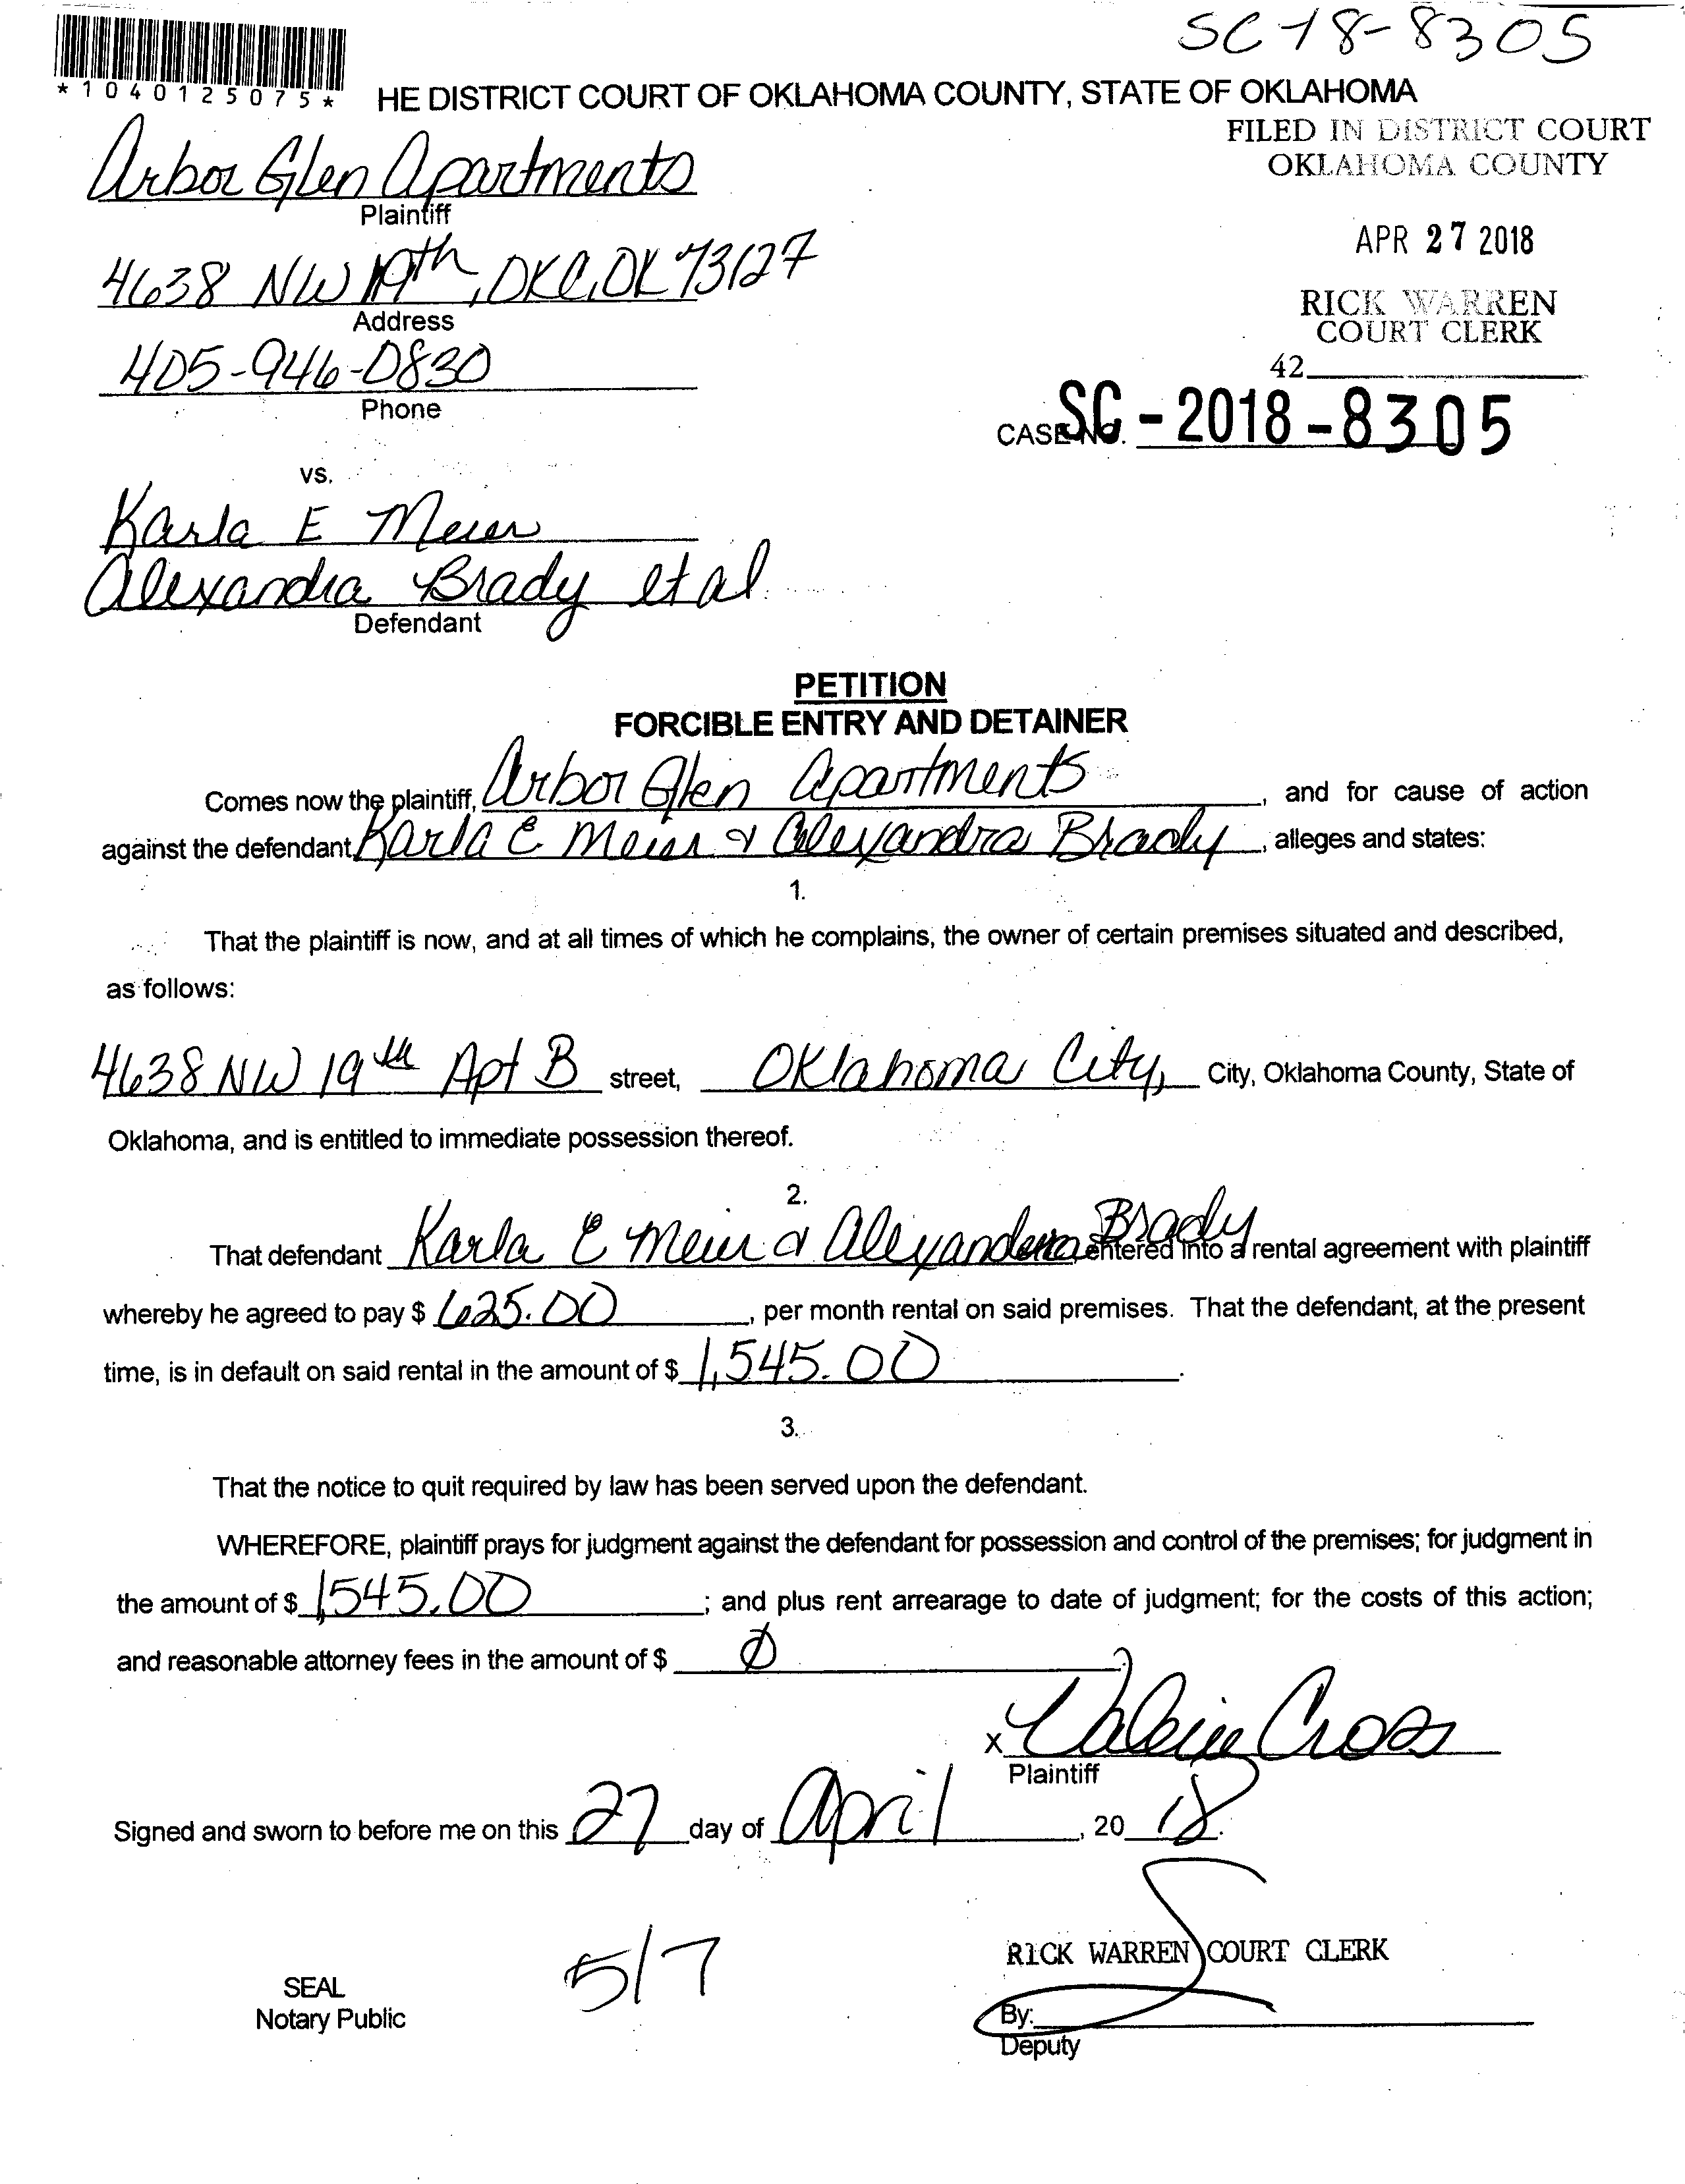 SC-18-8305
*1040125075*
HE DISTRICT COURT OF OKLAHOMA COUNTY, STATE OF OKLAHOMA
FILED IN DISTRICT COURT
OKLAHOMA COUNTY
Arbor Glen Apartments
Plaintiff
APR 27 2018
4638 NW 19th, OKC, OK 73127
Address
RICK WARREN
COURT CLERK
405-946-0830
Phone
42
CASE NO. SC-2018-8305
vs.
Karla E Meier
Alexandra Brady et al
Defendant
PETITION
FORCIBLE ENTRY AND DETAINER
Comes now the plaintiff, Arbor Glen Apartments, and for cause of action
against the defendant, Karla E Meier & Alexandra Brady, alleges and states:
1.
That the plaintiff is now, and at all times of which he complains, the owner of certain premises situated and described,
as follows:
4638 NW 19th Apt B street, Oklahoma City, City, Oklahoma County, State of
Oklahoma, and is entitled to immediate possession thereof.
2.
That defendant Karla E Meier & Alexandra Brady, entered into a rental agreement with plaintiff
whereby he agreed to pay $ 625.00, per month rental on said premises. That the defendant, at the present
time, is in default on said rental in the amount of $ 1,545.00.
3.
That the notice to quit required by law has been served upon the defendant.
WHEREFORE, plaintiff prays for judgment against the defendant for possession and control of the premises; for judgment in
the amount of $ 1,545.00; and plus rent arrearage to date of judgment; for the costs of this action;
and reasonable attorney fees in the amount of $ Ø.
x Valerie Cross
Plaintiff
Signed and sworn to before me on this 27 day of April, 2018.
5/7
RICK WARREN COURT CLERK
SEAL
Notary Public
By:
Deputy